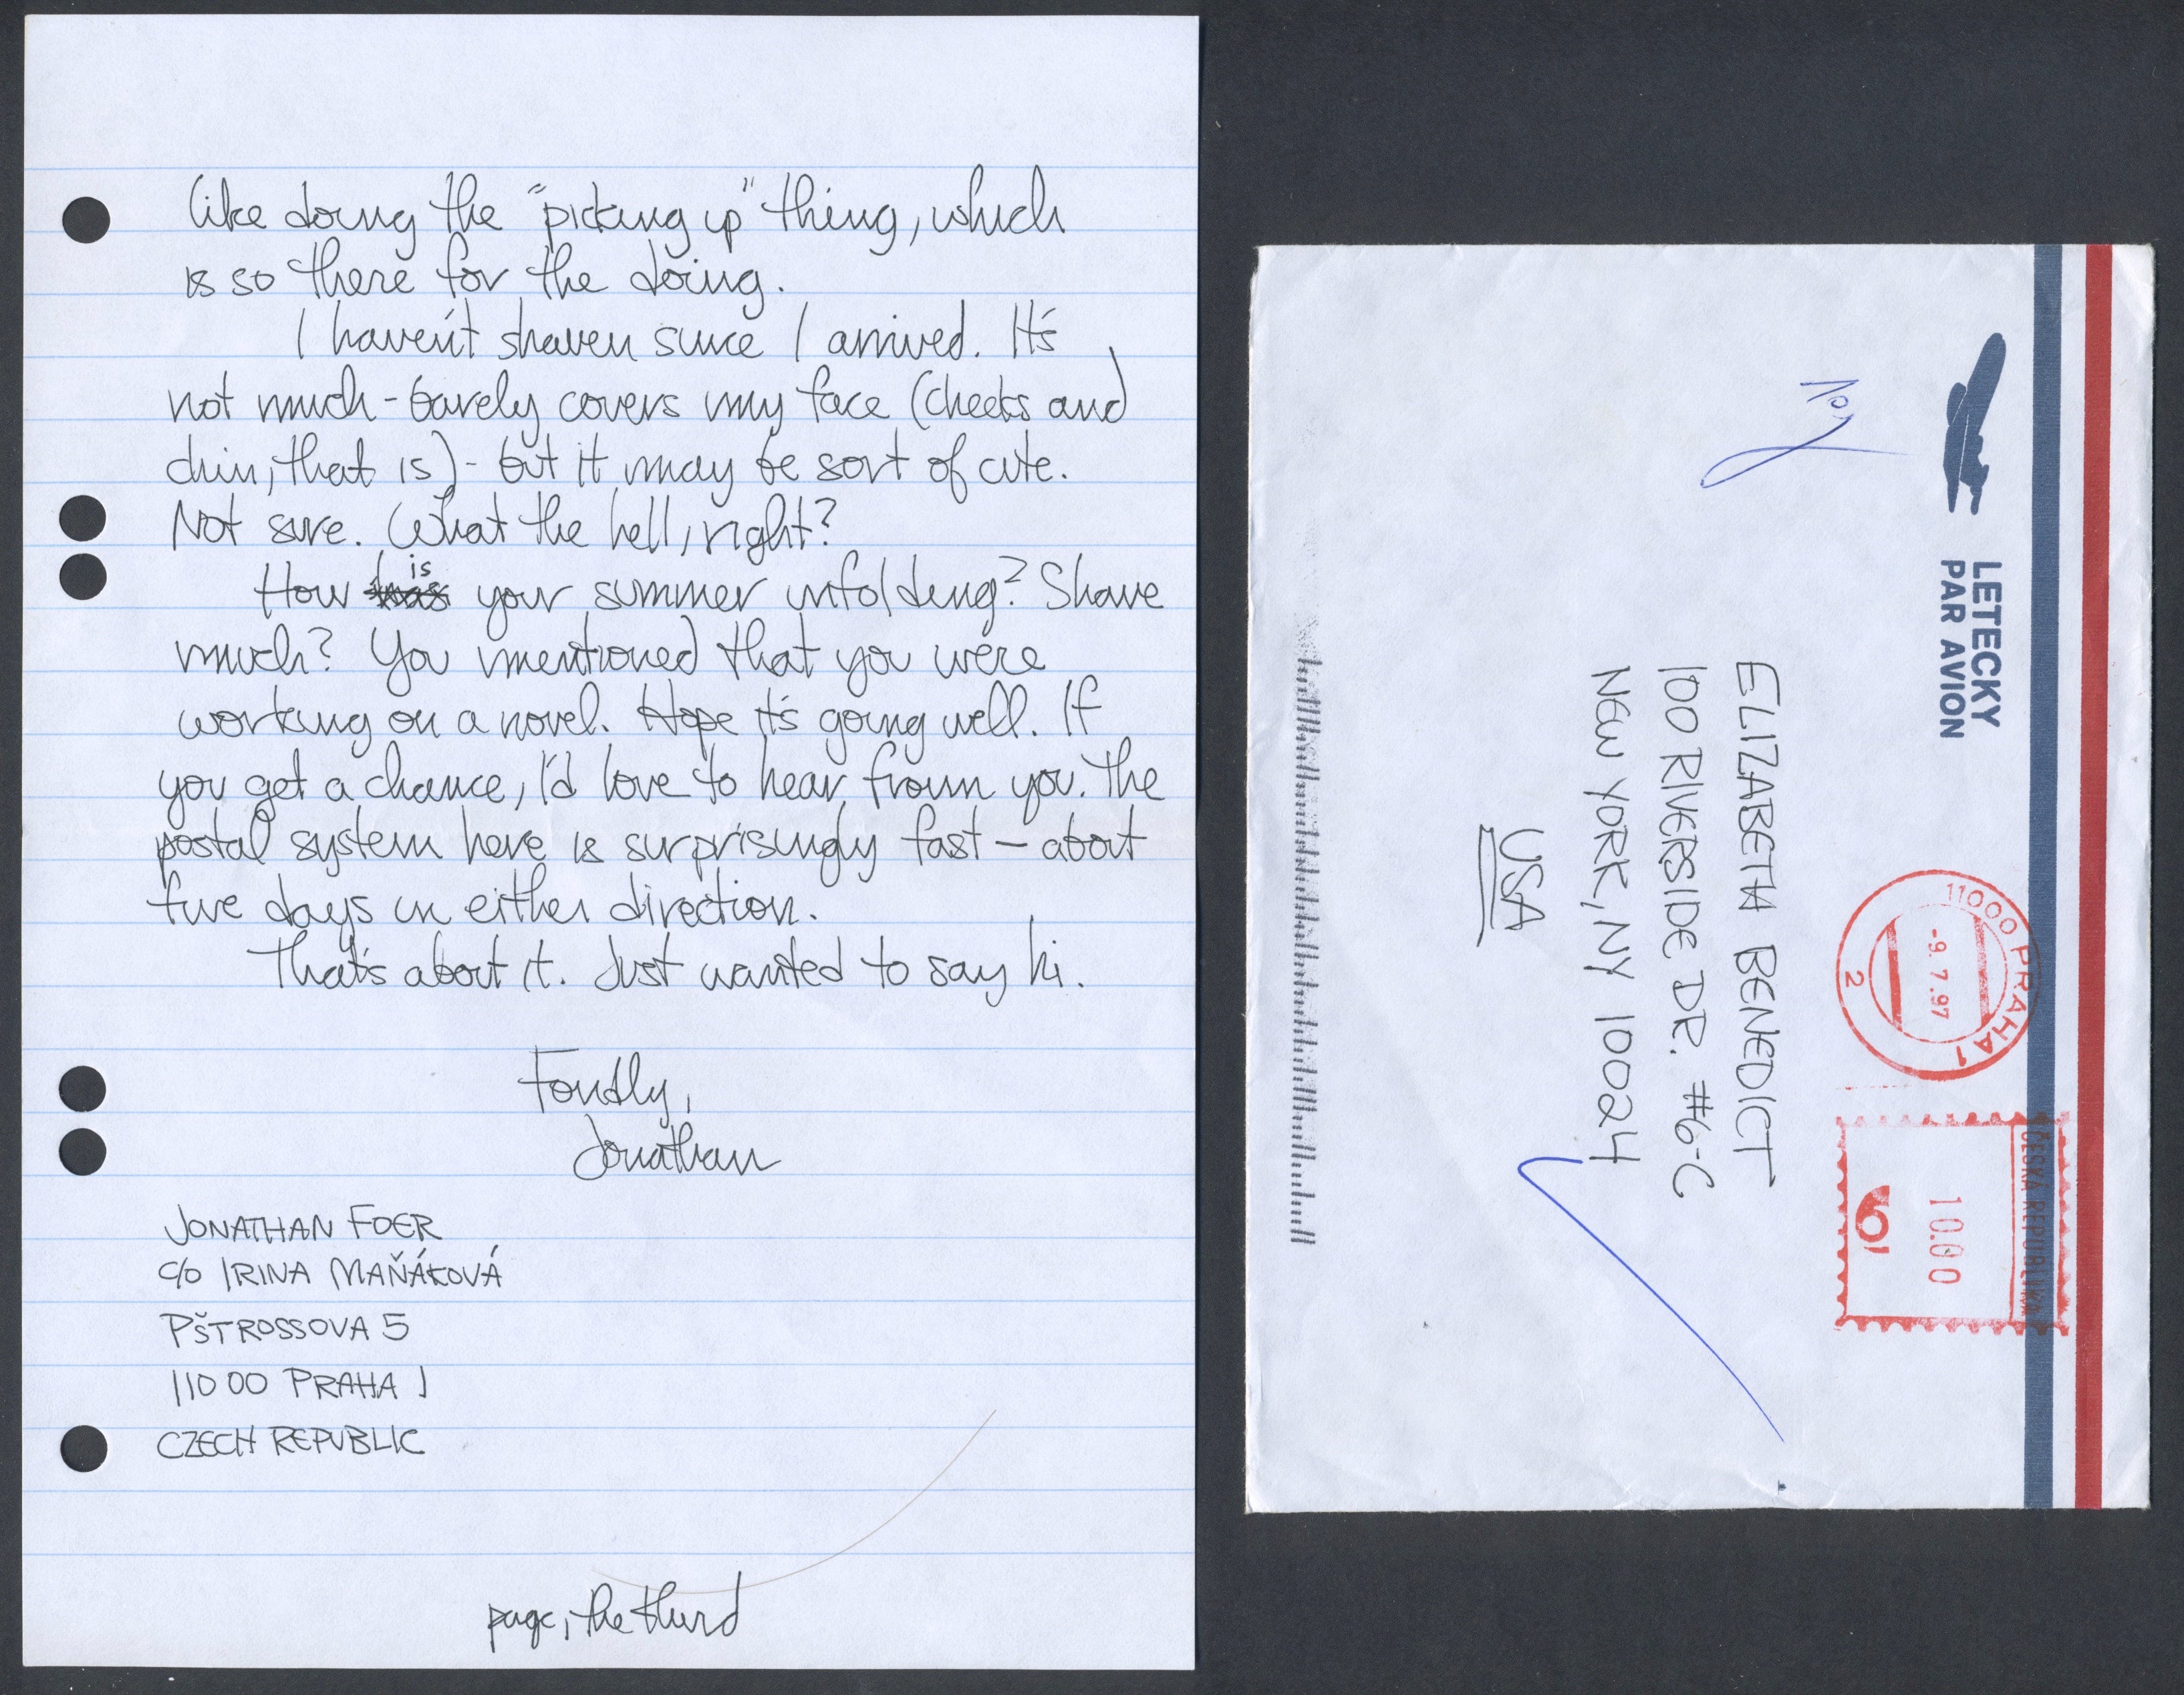 like doing the "picking up" thing, which
is so there for the doing.
I haven't shaven since I arrived. It's
not much - barely covers my face (cheeks and
chin, that is) - but it may be sort of cute.
Not sure. What the hell, right?
How is your summer unfolding? Shave
much? You mentioned that you were
working on a novel. Hope it's going well. If
you get a chance, I'd love to hear from you. The
postal system here is surprisingly fast — about
five days in either direction.
That's about it. Just wanted to say hi.
Fondly,
Jonathan
JONATHAN FOER
c/o IRINA MAŇÁKOVÁ
PŠTROSSOVA 5
110 00 PRAHA 1
CZECH REPUBLIC
page, the third
LETECKY
PAR AVION
ELIZABETH BENEDICT
100 RIVERSIDE DR. #6-C
NEW YORK, NY 10024
USA
11000 PRAHA 1
-9.7.97
2
ČESKÁ REPUBLIKA
10.00